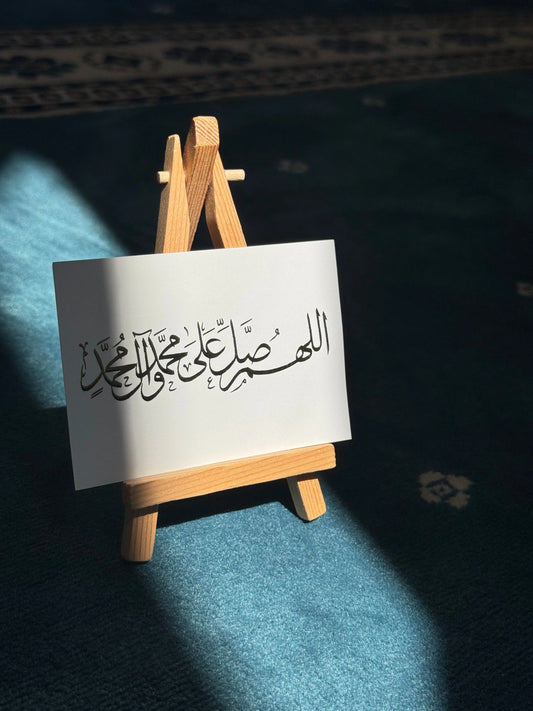 اللهم صَلِّ عَلَى محمَّد وَآلِ مُحمَّدٍ